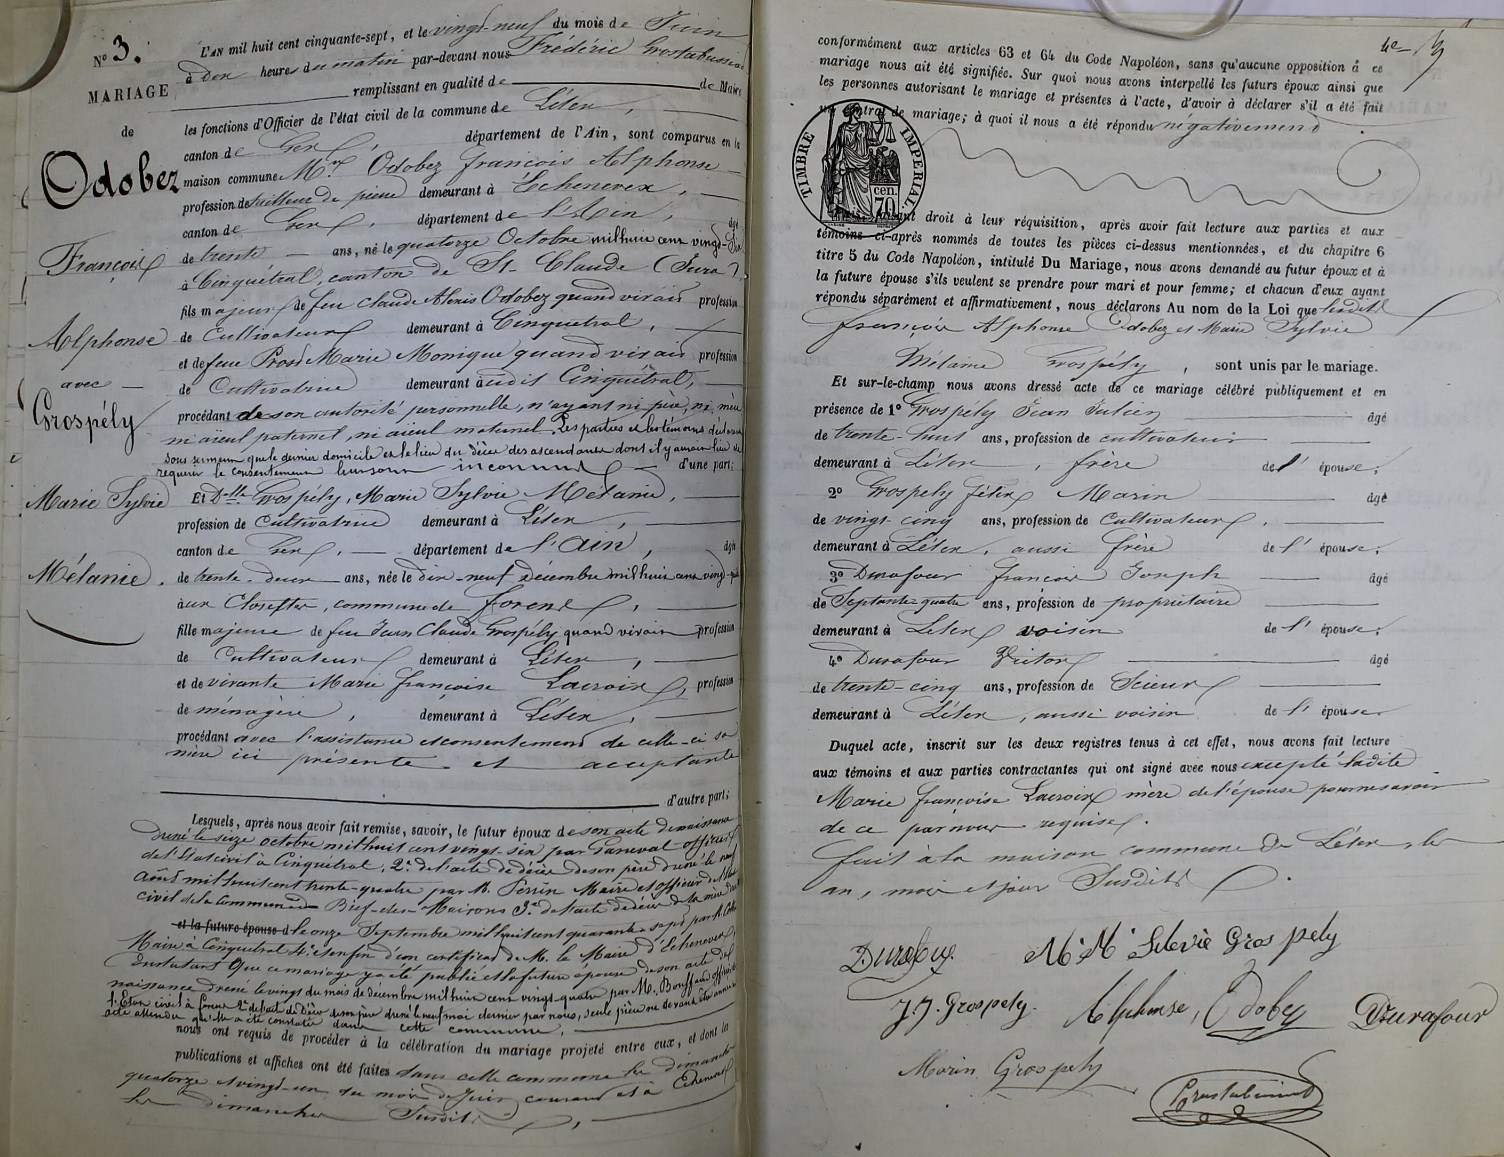 N° 3.
MARIAGE
de
Odobez
François
Alphonse
avec
Grospély
Marie Sylvie
Mélanie.
L'AN mil huit cent cinquante-sept, et le vingt-neuf du mois de Juin
à dix heures du matin par-devant nous Frédéric Grostabussiat
remplissant en qualité de de Maire
les fonctions d'Officier de l'état civil de la commune de Lélex,
canton de Gex, département de l'Ain, sont comparus en la
maison commune Mr. Odobez françois Alphonse
profession de tailleur de pierre demeurant à Echenevex,
canton de Gex, département de l'Ain, âgé
de trente ans, né le quatorze Octobre mil huit cent vingt-six
à Cinquétral, canton de St. Claude (Jura),
fils majeur de feu Claude Alexis Odobez quand vivait profession
de Cultivateur demeurant à Cinquétral,
et de feue Prost Marie Monique quand vivait profession
de Cultivatrice demeurant audit Cinquétral,
procédant de son autorité personnelle, n'ayant ni père, ni mère
ni aïeul paternel, ni aïeul maternel. Les parties et les témoins déclarent
sous serment que le dernier domicile et le lieu du décès des ascendants dont il y aurait lieu de
requérir le consentement leur sont inconnus d'une part;
Et Delle Grospély, Marie Sylvie Mélanie,
profession de Cultivatrice demeurant à Lélex,
canton de Gex, département de l'Ain, âgée
de trente-deux ans, née le dix-neuf Décembre mil huit cent vingt-quatre
aux Closettes, commune de forens,
fille majeure de feu Jean Claude Grospély quand vivait profession
de Cultivateur demeurant à Lélex,
et de vivante Marie françoise Lacroix, profession
de ménagère, demeurant à Lélex,
procédant avec l'assistance et consentement de celle-ci sa
mère ici présente et acceptante
d'autre part;
Lesquels, après nous avoir fait remise, savoir, le futur époux de son acte de naissance
dressé le seize octobre mil huit cent vingt six par officier
de l'Etat civil à Cinquétral, 2° de l'acte de décès de son père dressé le neuf
Août mil huit cent trente-quatre par M. Perrin Maire et officier de l'Etat
civil de la commune de Bief-des-Maisons 3° de l'acte de décès de sa mère dressé
et la future épouse d le onze Septembre mil huit cent quarante sept par M.
Maire à Cinquétral 4° et enfin d'un certificat de M. le Maire d'Echenevex,
constatant que ce mariage y a été publié et la future épouse de son acte de
naissance dressé le vingt du mois de décembre mil huit cent vingt-quatre par M. Bouffard officier de
l'Etat civil à forens 2° de l'acte de décès de son père dressé le neuf mai dernier par nous, seule pièce
acte attendu qu'il a été constatée dans cette commune,
nous ont requis de procéder à la célébration du mariage projeté entre eux, et dont la
publications et affiches ont été faites dans cette commune les dimanches
quatorze et vingt-un du mois de Juin courant et à Echenevex
les dimanches Susdits,
4e
conformément aux articles 63 et 64 du Code Napoléon, sans qu'aucune opposition à ce
mariage nous ait été signifiée. Sur quoi nous avons interpellé les futurs époux ainsi que
les personnes autorisant le mariage et présentes à l'acte, d'avoir à déclarer s'il a été fait
un contrat de mariage; à quoi il nous a été répondu négativement.
TIMBRE IMPERIAL.
70 cen.
droit à leur réquisition, après avoir fait lecture aux parties et aux
témoins ci-après nommés de toutes les pièces ci-dessus mentionnées, et du chapitre 6
titre 5 du Code Napoléon, intitulé Du Mariage, nous avons demandé au futur époux et à
la future épouse s'ils veulent se prendre pour mari et pour femme; et chacun d'eux ayant
répondu séparément et affirmativement, nous déclarons Au nom de la Loi que lesdits
françois Alphonse Odobez et Marie Sylvie
Mélanie Grospély, sont unis par le mariage.
Et sur-le-champ nous avons dressé acte de ce mariage célébré publiquement et en
présence de 1° Grospély Jean Julien âgé
de trente-huit ans, profession de cultivateur
demeurant à Lélex, frère de l'épouse;
2° Grospely félix Marin âgé
de vingt-cinq ans, profession de Cultivateur,
demeurant à Lélex, aussi frère de l'épouse;
3° Durafour françois Joseph âgé
de Septante-quatre ans, profession de propriétaire
demeurant à Lélex voisin de l'épouse;
4° Durafour Victor âgé
de trente-cinq ans, profession de Scieur
demeurant à Lélex, aussi voisin de l'épouse.
Duquel acte, inscrit sur les deux registres tenus à cet effet, nous avons fait lecture
aux témoins et aux parties contractantes qui ont signé avec nous excepté ladite
Marie françoise Lacroix mère de l'épouse pour ne savoir
de ce par nous requise.
fait à la maison commune de Lélex, les
an, mois et jour Susdits.
Durafour. Me Me Silevie Grospely
J. J. Grospely. Alphonse, Odobez Durafour
Marin Grospely Grostabussiat